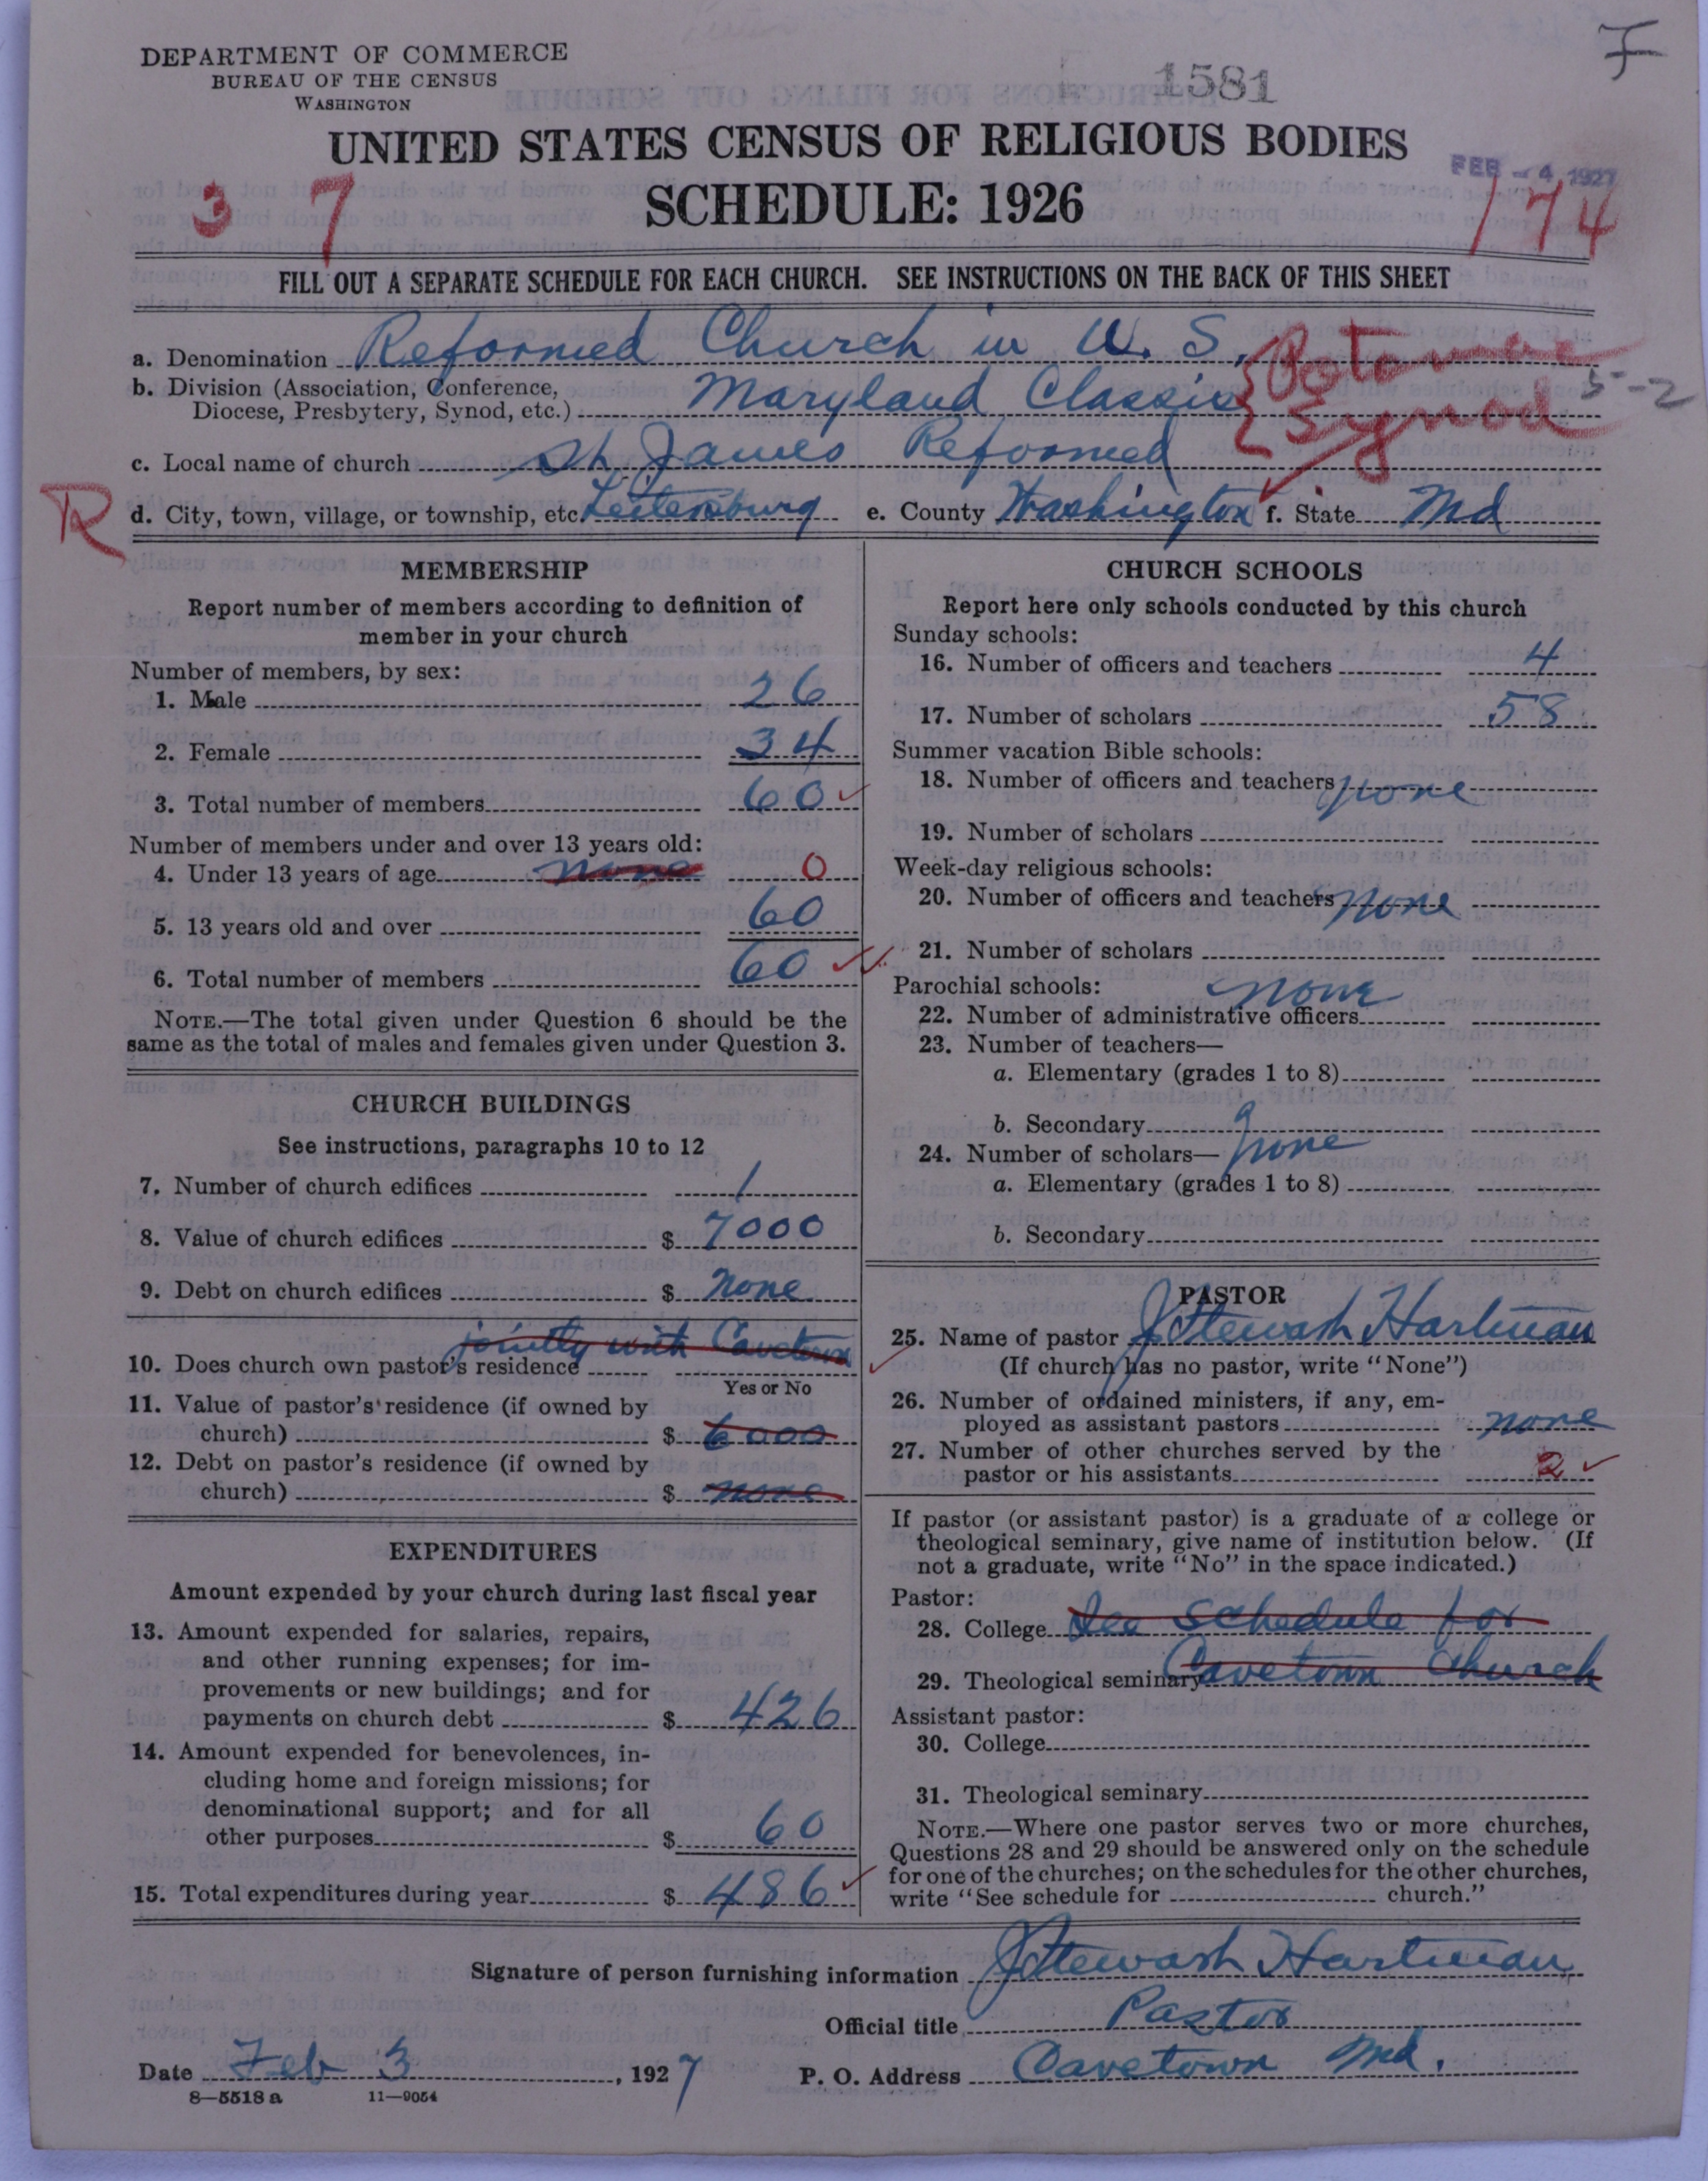 DEPARTMENT OF COMMERCE
BUREAU OF THE CENSUS
WASHINGTON
F
1581
UNITED STATES CENSUS OF RELIGIOUS BODIES
SCHEDULE: 1926
FEB - 4 1927
3 7
174
FILL OUT A SEPARATE SCHEDULE FOR EACH CHURCH. SEE INSTRUCTIONS ON THE BACK OF THIS SHEET
a. Denomination Reformed Church in U. S.
Potomac
b. Division (Association, Conference,
Diocese, Presbytery, Synod, etc.) Maryland Classis
Synod
5-2
c. Local name of church St. James Reformed
R
d. City, town, village, or township, etc. Leitersburg e. County Washington f. State Md
MEMBERSHIP
Report number of members according to definition of
member in your church
Number of members, by sex:
1. Male 26
2. Female 34
3. Total number of members 60
Number of members under and over 13 years old:
4. Under 13 years of age none 0
5. 13 years old and over 60
6. Total number of members 60
NOTE.—The total given under Question 6 should be the
same as the total of males and females given under Question 3.
CHURCH BUILDINGS
See instructions, paragraphs 10 to 12
7. Number of church edifices 1
8. Value of church edifices $ 7000
9. Debt on church edifices $ none
jointly with Cavetown
10. Does church own pastor's residence
Yes or No
11. Value of pastor's residence (if owned by
church) $ 6000
12. Debt on pastor's residence (if owned by
church) $ none
EXPENDITURES
Amount expended by your church during last fiscal year
13. Amount expended for salaries, repairs,
and other running expenses; for im-
provements or new buildings; and for
payments on church debt $ 426
14. Amount expended for benevolences, in-
cluding home and foreign missions; for
denominational support; and for all
other purposes $ 60
15. Total expenditures during year $ 486
CHURCH SCHOOLS
Report here only schools conducted by this church
Sunday schools:
16. Number of officers and teachers 4
17. Number of scholars 58
Summer vacation Bible schools:
18. Number of officers and teachers none
19. Number of scholars
Week-day religious schools:
20. Number of officers and teachers none
21. Number of scholars
Parochial schools: none
22. Number of administrative officers
23. Number of teachers—
a. Elementary (grades 1 to 8)
b. Secondary
24. Number of scholars— none
a. Elementary (grades 1 to 8)
b. Secondary
PASTOR
25. Name of pastor J Stewart Hartman
(If church has no pastor, write "None")
26. Number of ordained ministers, if any, em-
ployed as assistant pastors none
27. Number of other churches served by the
pastor or his assistants 2
If pastor (or assistant pastor) is a graduate of a college or
theological seminary, give name of institution below. (If
not a graduate, write "No" in the space indicated.)
Pastor:
28. College See Schedule for
29. Theological seminary Cavetown Church
Assistant pastor:
30. College
31. Theological seminary
NOTE.—Where one pastor serves two or more churches,
Questions 28 and 29 should be answered only on the schedule
for one of the churches; on the schedules for the other churches,
write "See schedule for church."
Signature of person furnishing information J Stewart Hartman
Official title Pastor
Date Feb 3, 1927 P. O. Address Cavetown Md.
8—5518 a 11—9054